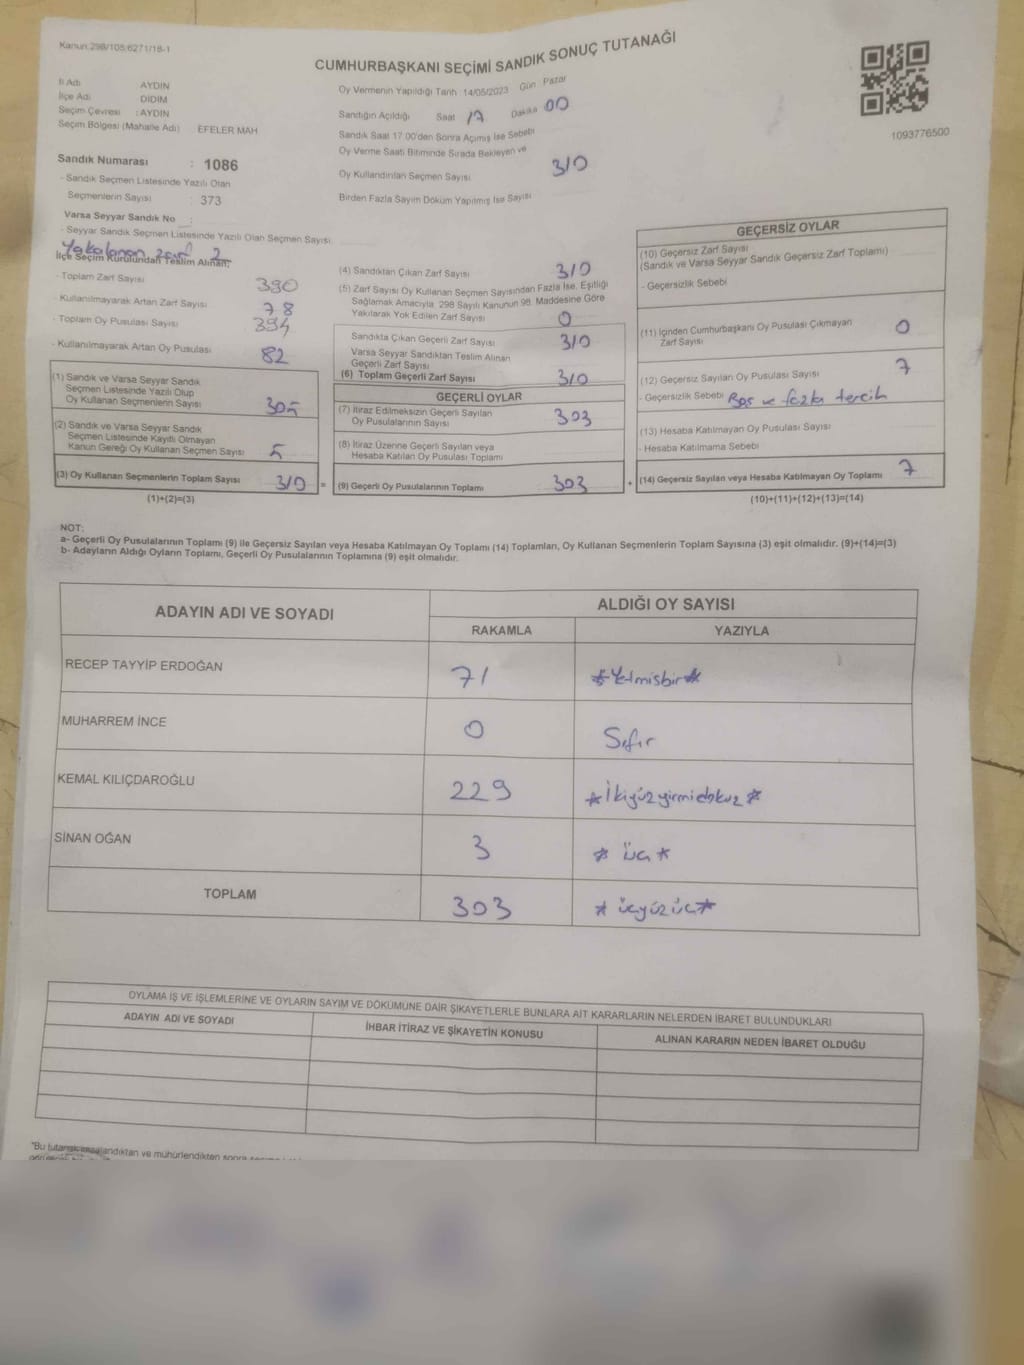 Kanun:298/105;6271/18-1
CUMHURBAŞKANI SEÇİMİ SANDIK SONUÇ TUTANAĞI
İl Adı AYDIN
İlçe Adı DİDİM
Seçim Çevresi : AYDIN
Seçim Bölgesi (Mahalle Adı) EFELER MAH
Sandık Numarası : 1086
- Sandık Seçmen Listesinde Yazılı Olan
Seçmenlerin Sayısı : 373
Varsa Seyyar Sandık No :
- Seyyar Sandık Seçmen Listesinde Yazılı Olan Seçmen Sayısı
Oy Vermenin Yapıldığı Tarih : 14/05/2023 Gün Pazar
Sandığın Açıldığı Saat 17 Dakika 00
Sandık Saat 17.00'den Sonra Açımış İse Sebebi
Oy Verme Saati Bitiminde Sırada Bekleyen ve
Oy Kullandırılan Seçmen Sayısı 310
Birden Fazla Sayım Döküm Yapılmış İse Sayısı
1093776500
Yakalanan zarf 2
İlçe Seçim Kurulundan Teslim Alınan;
- Toplam Zarf Sayısı 390
- Kullanılmayarak Artan Zarf Sayısı 78
- Toplam Oy Pusulası Sayısı 394
- Kullanılmayarak Artan Oy Pusulası 82
(1) Sandık ve Varsa Seyyar Sandık
Seçmen Listesinde Yazılı Olup
Oy Kullanan Seçmenlerin Sayısı 305
(2) Sandık ve Varsa Seyyar Sandık
Seçmen Listesinde Kayıtlı Olmayan
Kanun Gereği Oy Kullanan Seçmen Sayısı 5
(3) Oy Kullanan Seçmenlerin Toplam Sayısı 310 =
(1)+(2)=(3)
(4) Sandıktan Çıkan Zarf Sayısı 310
(5) Zarf Sayısı Oy Kullanan Seçmen Sayısından Fazla İse, Eşitliği
Sağlamak Amacıyla, 298 Sayılı Kanunun 98. Maddesine Göre
Yakılarak Yok Edilen Zarf Sayısı 0
Sandıkta Çıkan Geçerli Zarf Sayısı 310
Varsa Seyyar Sandıktan Teslim Alınan
Geçerli Zarf Sayısı
(6) Toplam Geçerli Zarf Sayısı 310
GEÇERLİ OYLAR
(7) İtiraz Edilmeksizin Geçerli Sayılan
Oy Pusulalarının Sayısı 303
(8) İtiraz Üzerine Geçerli Sayılan veya
Hesaba Katılan Oy Pusulası Toplamı
(9) Geçerli Oy Pusulalarının Toplamı 303 +
GEÇERSİZ OYLAR
(10) Geçersiz Zarf Sayısı
(Sandık ve Varsa Seyyar Sandık Geçersiz Zarf Toplamı)
- Geçersizlik Sebebi
(11) İçinden Cumhurbaşkanı Oy Pusulası Çıkmayan
Zarf Sayısı 0
(12) Geçersiz Sayılan Oy Pusulası Sayısı 7
- Geçersizlik Sebebi Boş ve fazla tercih
(13) Hesaba Katılmayan Oy Pusulası Sayısı
- Hesaba Katılmama Sebebi
(14) Geçersiz Sayılan veya Hesaba Katılmayan Oy Toplamı 7
(10)+(11)+(12)+(13)=(14)
NOT:
a- Geçerli Oy Pusulalarının Toplamı (9) ile Geçersiz Sayılan veya Hesaba Katılmayan Oy Toplamı (14) Toplamları, Oy Kullanan Seçmenlerin Toplam Sayısına (3) eşit olmalıdır. (9)+(14)=(3)
b- Adayların Aldığı Oyların Toplamı, Geçerli Oy Pusulalarının Toplamına (9) eşit olmalıdır.
ADAYIN ADI VE SOYADI ALDIĞI OY SAYISI
RAKAMLA YAZIYLA
RECEP TAYYİP ERDOĞAN 71 *Yetmişbir*
MUHARREM İNCE 0 Sıfır
KEMAL KILIÇDAROĞLU 229 *İkiyüzyirmidokuz*
SİNAN OĞAN 3 * üç *
TOPLAM 303 * üçyüzüç*
OYLAMA İŞ VE İŞLEMLERİNE VE OYLARIN SAYIM VE DÖKÜMÜNE DAİR ŞİKAYETLERLE BUNLARA AİT KARARLARIN NELERDEN İBARET BULUNDUKLARI
ADAYIN ADI VE SOYADI İHBAR İTİRAZ VE ŞİKAYETİN KONUSU ALINAN KARARIN NEDEN İBARET OLDUĞU
"Bu tutanak ve mühürlendikten sonra